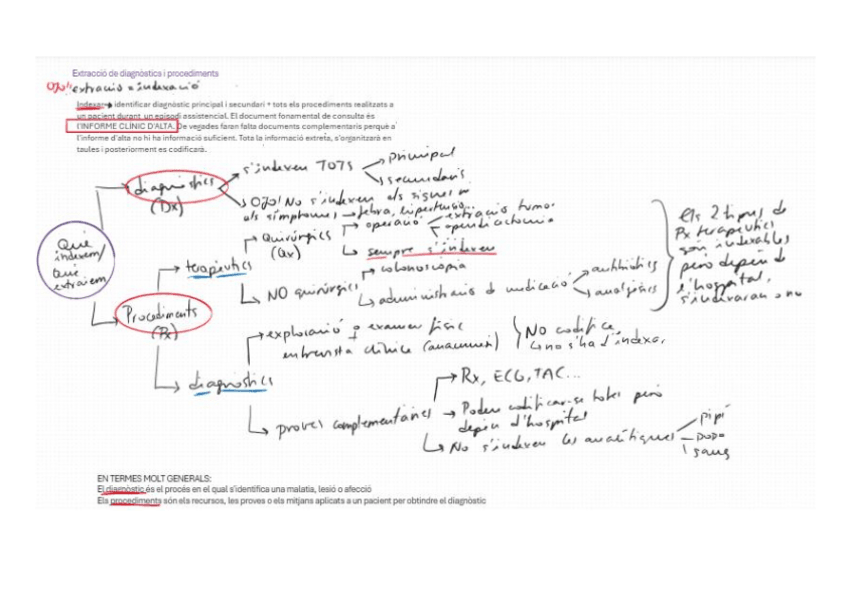 Extracció de diagnòstics i procediments
OJO!! extracció = indexació
Indexar → identificar diagnòstic principal i secundari + tots els procediments realitzats a
un pacient durant un episodi assistencial. El document fonamental de consulta és
l'INFORME CLÍNIC D'ALTA. De vegades faran falta documents complementaris perquè a
l'informe d'alta no hi ha informació suficient. Tota la informació extreta, s'organitzarà en
taules i posteriorment es codificarà.
Que indexem/ que extraiem
diagnòstics (Dx)
s'indexen TOTS
principal
secundaris
OJO! No s'indexen els signes
els símptomes → febra, hipertensió...
Procediments (Px)
terapèutics
Quirúrgics (Qx)
operació
extracció tumor
apendicectomia
sempre s'indexen
NO quirúrgics
colonoscopia
administració d medicació
antibiòtics
analgèsics
Els 2 tipus de
Px terapèutics
són indexables
però depèn de
l'hospital,
s'indexaran o no
diagnòstics
exploració o examen físic
entrevista clínica (anamnesi)
No codifica,
no s'ha d'indexar.
proves complementàries
Rx, ECG, TAC...
Poden codificar-se totes però
depèn d'hospital
No s'indexen les analítiques
pipí
popo
sang
EN TERMES MOLT GENERALS:
El diagnòstic és el procés en el qual s'identifica una malatia, lesió o afecció
Els procediments són els recursos, les proves o els mitjans aplicats a un pacient per obtindre el diagnòstic